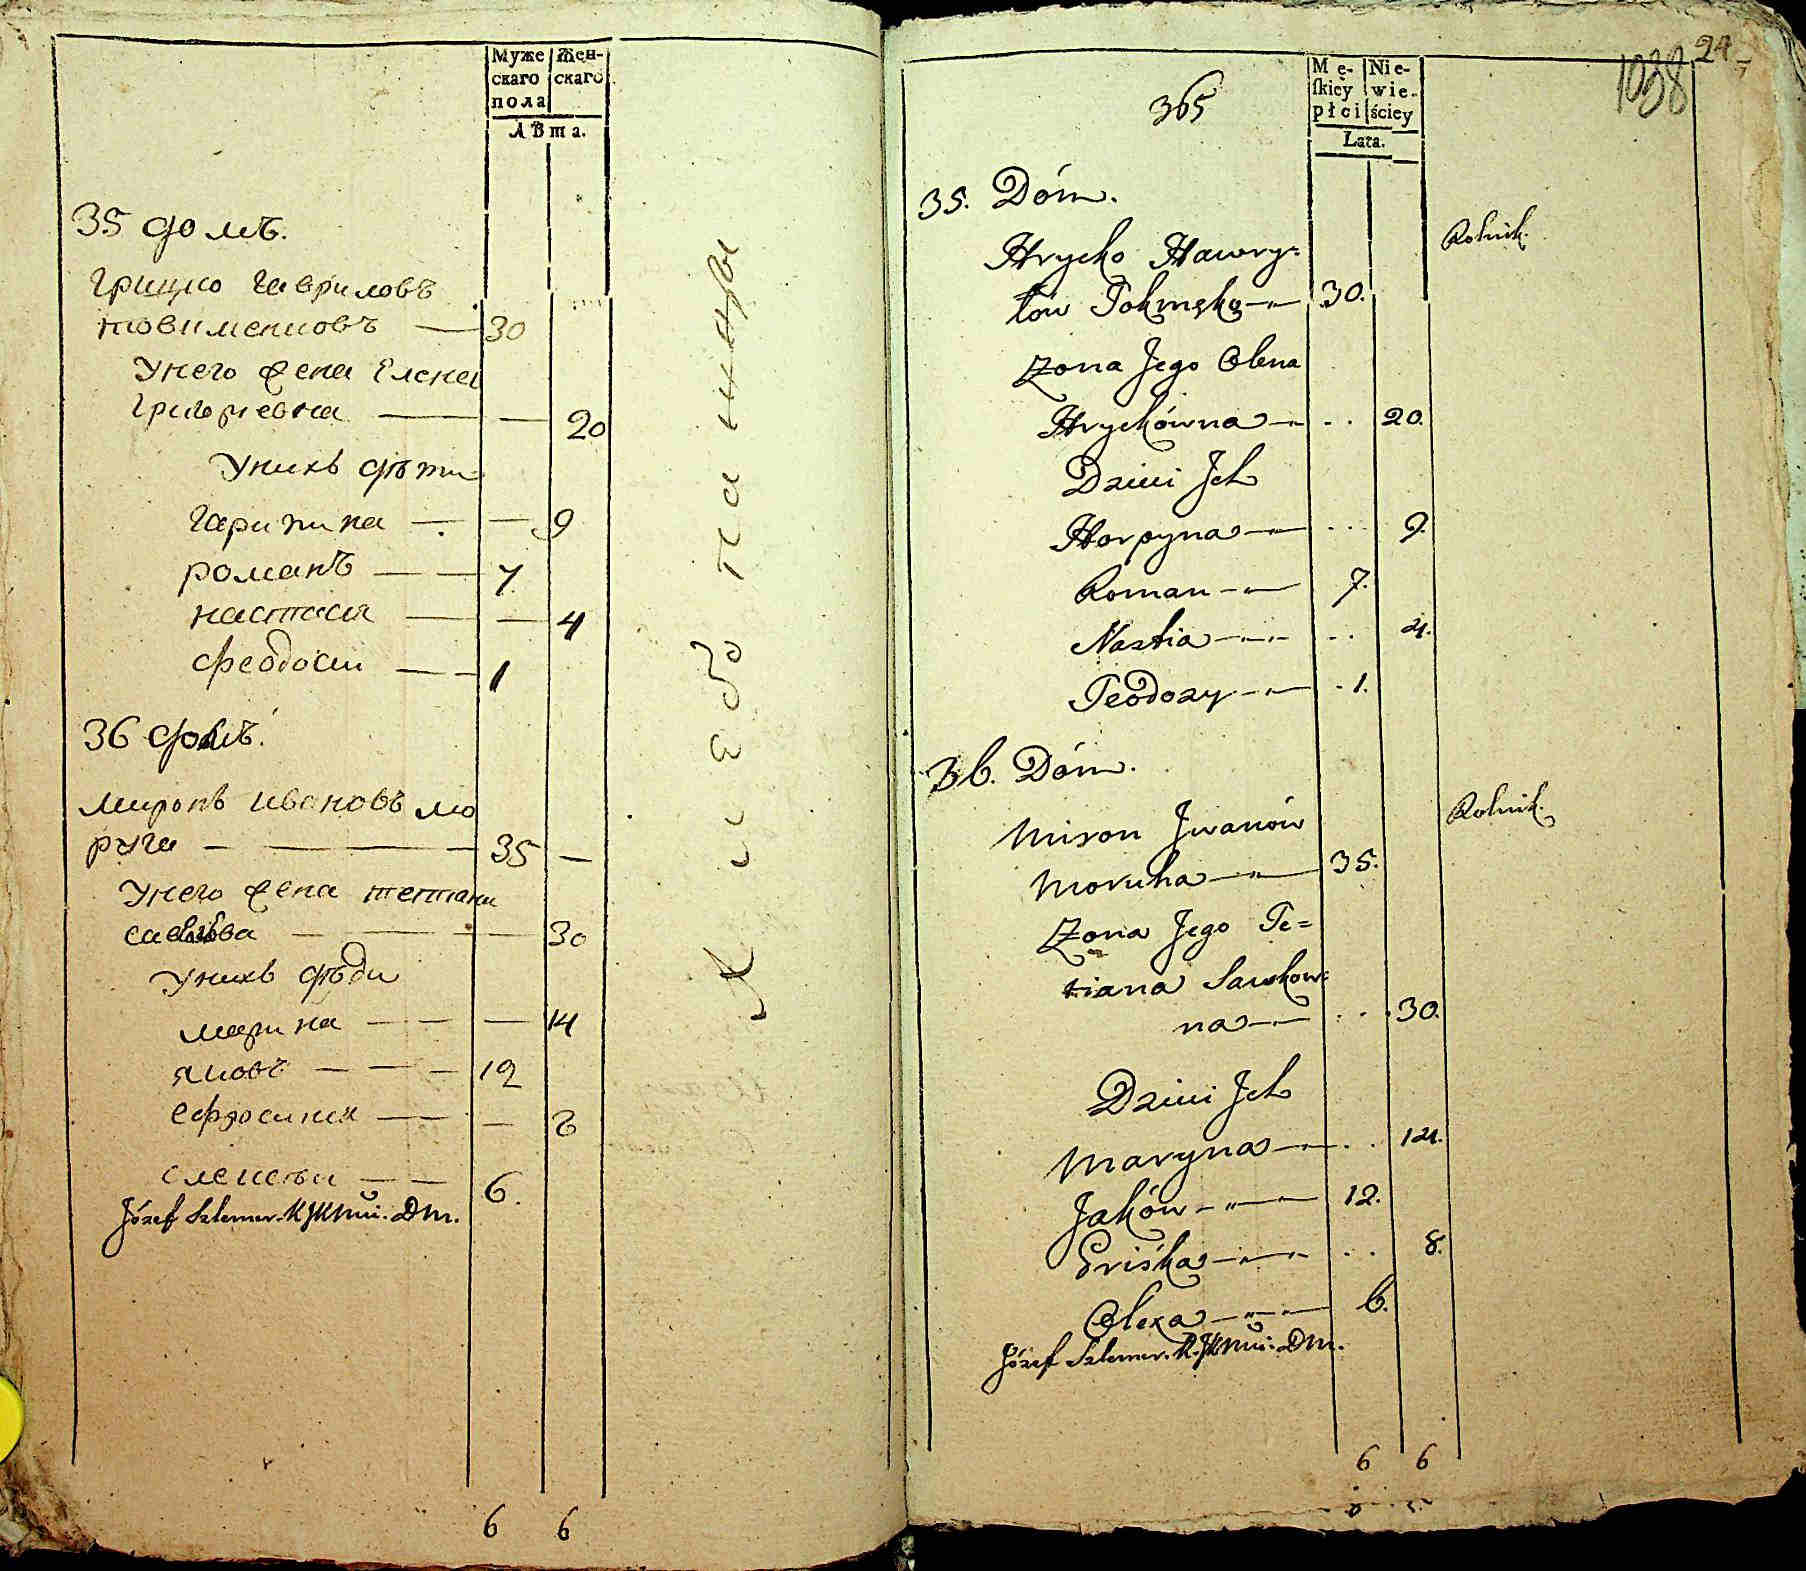 Муже
скаго
пола
Жен-
скаго
Лѣта.
35 домъ.
Грицко Гавриловъ
— 30
Унего жена Елена
Григориевна — — 20
Унихъ дѣти
Гарипина — — 9
романъ — — 7.
настасия — — 4
феодоси — — 1
36 домъ.
миронъ ивановъ мо
руга — — — — 35 —
Унего жена тетпана
— — — — 30
Унихъ дѣди
марина — — — 14
яковъ — — — 12
ефросиния — — 8
алексѣи — — 6.
Józef Szlemer. DM.
6 6
хлебопашцы
365
1038
24
Mę-
skiey
płci
Nie-
wie-
ściey
Lata.
35. Dóm.
Hrycko Hawry=
łow — 30.
Rolnik.
Zona Jego Olena
Hryckówna — .. 20.
Dzieci Ich
Horpyna — ... 9.
Roman — 7.
Nastia — .. 4.
Teodozy — . 1.
36. Dóm.
Miron Iwanów
Rolnik.
Moruha — 35.
Zona Jego Te=
tiana Sawkow=
na — .. 30.
Dzieci Ich
Maryna — .. 14.
Jaków — 12.
Priśka — .. 8.
Olexa — 6.
Józef Szlemer. DM.
6 6